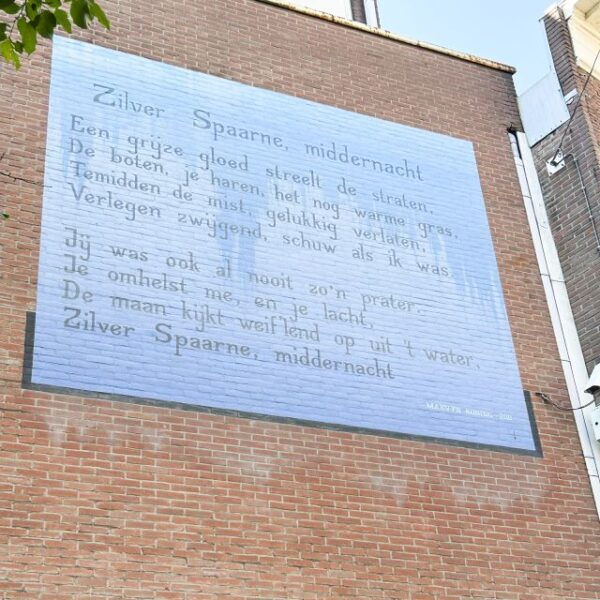 Zilver Spaarne, middernacht
Een grijze gloed streelt de straten,
De boten, je haren, het nog warme gras,
Temidden de mist, gelukkig verlaten,
Verlegen zwijgend, schuw als ik was
Jij was ook al nooit zo'n prater.
Je omhelst me, en je lacht,
De maan kijkt weif'lend op uit 't water,
Zilver Spaarne, middernacht